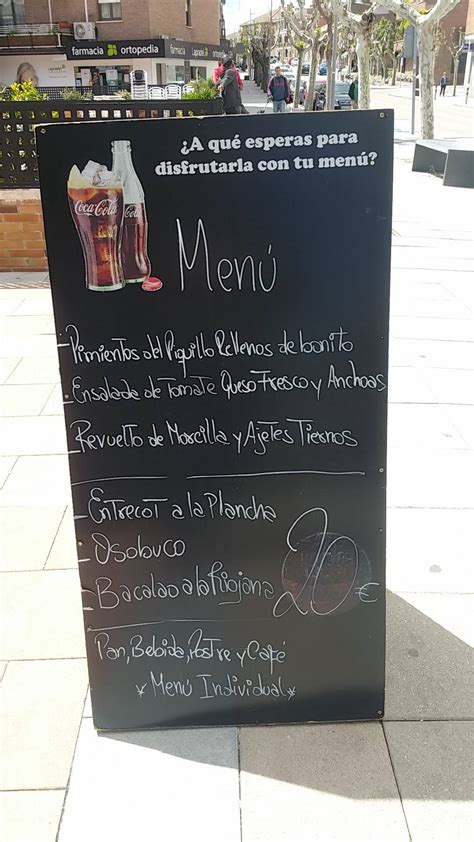 farmacia ortopedia
farmacia
ortopedia
¿A qué esperas para
disfrutarla con tu menú?
Coca-Cola
Coca-Cola
Menú
-Pimientos del Piquillo Rellenos de bonito
-Ensalada de Tomate Queso Fresco y Anchoas
-Revuelto de Morcilla y Ajetes Tiernos
-Entrecot a la Plancha
-Osobuco
-Bacalao a la Riojana
20€
Pan, Bebida, Postre y Café
* Menú Individual *